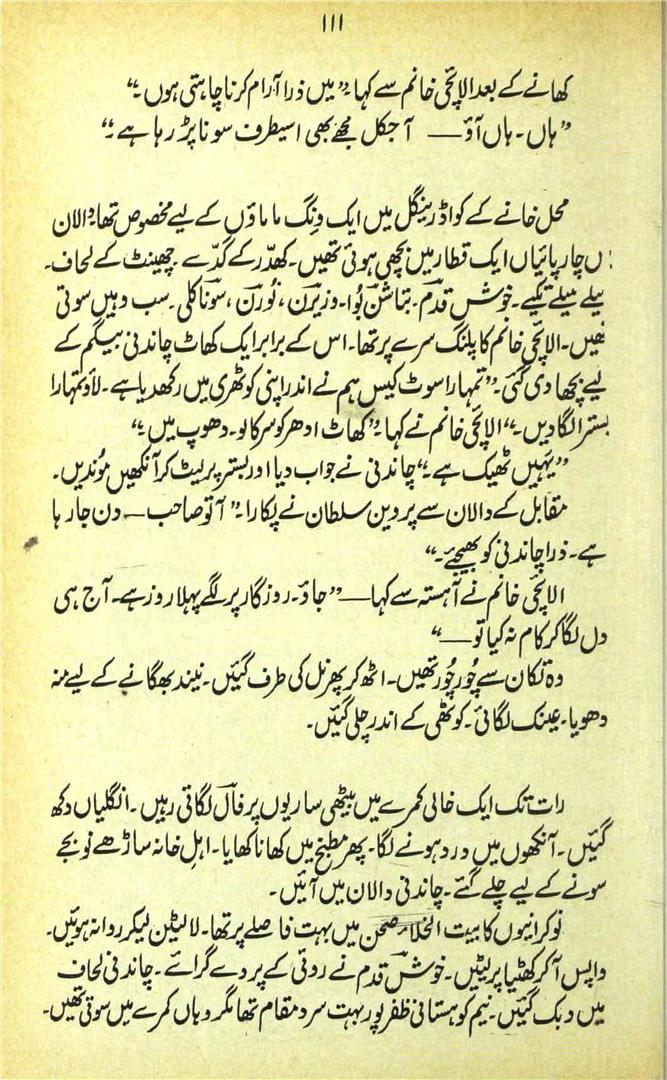 ۱۱۱
کھانے کے بعد الائچی خانم سے کہا۔ ”میں ذرا آرام کرنا چاہتی ہوں۔“
”ہاں۔ ہاں آؤ — آجکل مجھے بھی اسیطرف سونا پڑ رہا ہے۔“
محل خانے کے کواڈرینگل میں ایک وِنگ ماماؤں کے لیے مخصوص تھا۔ دالان
ں چارپائیاں ایک قطار میں بچھی ہوئی تھیں۔ کھدّر کے گدّے۔ چھینٹ کے لحاف۔
میلے تکیے۔ خوش قدم۔ بتاشن بُوا۔ وزیرن، نُورن، سوناکلی۔ سب وہیں سوتی
تھیں۔ الائچی خانم کا پلنگ سرے پر تھا۔ اس کے برابر ایک کھاٹ چاندنی بیگم کے
لیے بچھا دی گئی۔ ”تمہارا سوٹ کیس ہم نے اندر اپنی کوٹھری میں رکھدیا ہے۔ لاؤ تمہارا
بستر لگا دیں۔“ الائچی خانم نے کہا۔ ”کھاٹ ادھر کو سرکا لو۔ دھوپ میں۔“
”یہیں ٹھیک ہے۔“ چاندنی نے جواب دیا اور بستر پر لیٹ کر آنکھیں مُوندیں۔
مقابل کے دالان سے پروین سلطان نے پکارا۔ ”آتو صاحب — دن جا رہا
ہے۔ ذرا چاندنی کو بھیجئے۔“
الائچی خانم نے آہستہ سے کہا — ”جاؤ۔ روزگار پر لگے پہلا روز ہے۔ آج ہی
دل لگا کر کام نہ کیا تو —“
وہ تکان سے چُور چُور تھیں۔ اٹھ کر پھر نل کی طرف گئیں۔ نیند بھگانے کے لیے منہ
دھویا۔ عینک لگائی۔ کوٹھی کے اندر چلی گئیں۔
رات تک ایک خالی کمرے میں بیٹھی ساریوں پر فال لگاتی رہیں۔ انگلیاں دکھ
گئیں۔ آنکھوں میں درد ہونے لگا۔ پھر مطبخ میں کھانا کھایا۔ اہلِ خانہ ساڑھے نو بجے
سونے کے لیے چلے گئے۔ چاندنی دالان میں آئیں۔
نوکرانیوں کا بیت الخلاء صحن میں بہت فاصلے پر تھا۔ لالٹین لیکر روانہ ہوئیں۔
واپس آ کر کھٹیا پر لیٹیں۔ خوش قدم نے روئی کے پردے گرائے۔ چاندنی لحاف
میں دبک گئیں۔ نیم کوہستانی ظفر پور بہت سرد مقام تھا مگر وہاں کمرے میں سوتی تھیں۔